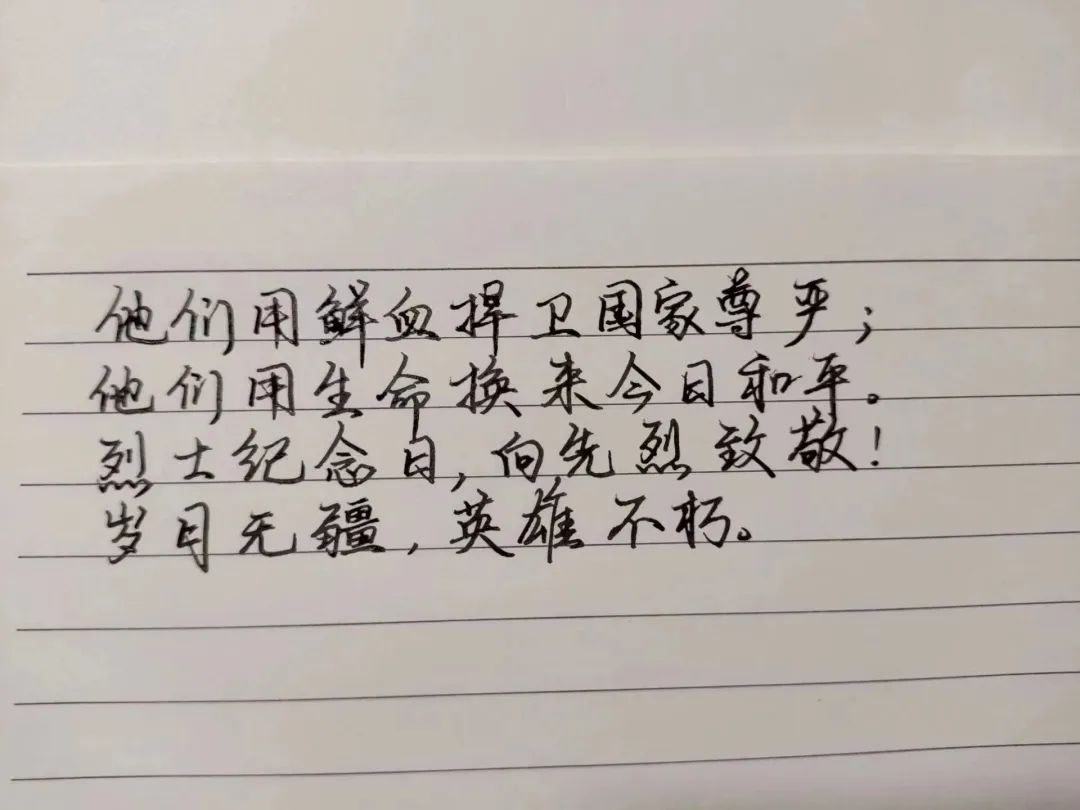 他们用鲜血捍卫国家尊严；
他们用生命换来今日和平。
烈士纪念日，向先烈致敬！
岁月无疆，英雄不朽。